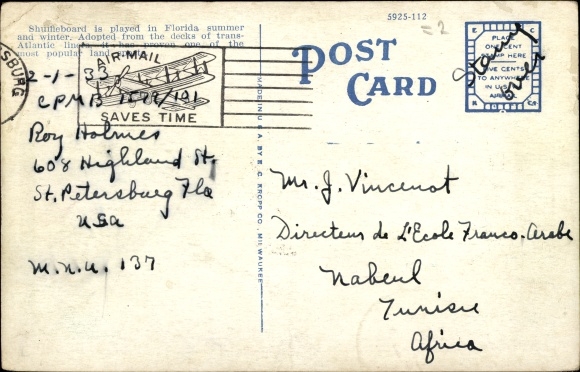 Shuffleboard is played in Florida summer
and winter. Adopted from the decks of trans-
Atlantic liners it has proven one of the
most popular land
5925-112
SBURG
AIR MAIL
SAVES TIME
2-1-33
CPMB 1579/191
Roy Holmes
608 Highland St.
St. Petersburg Fla
USA
M.N.U. 137
MADE IN U.S.A. BY E. C. KROPP CO., MILWAUKEE
POST
CARD
PLACE
ONE CENT
STAMP HERE
FIVE CENTS
TO ANYWHERE
IN U.S.
AIRMAIL
E C
K Co
Stamp
over
=2
Mr. J. Vincenot
Directeur de L'Ecole Franco-Arabe
Nabeul
Tunisie
Africa